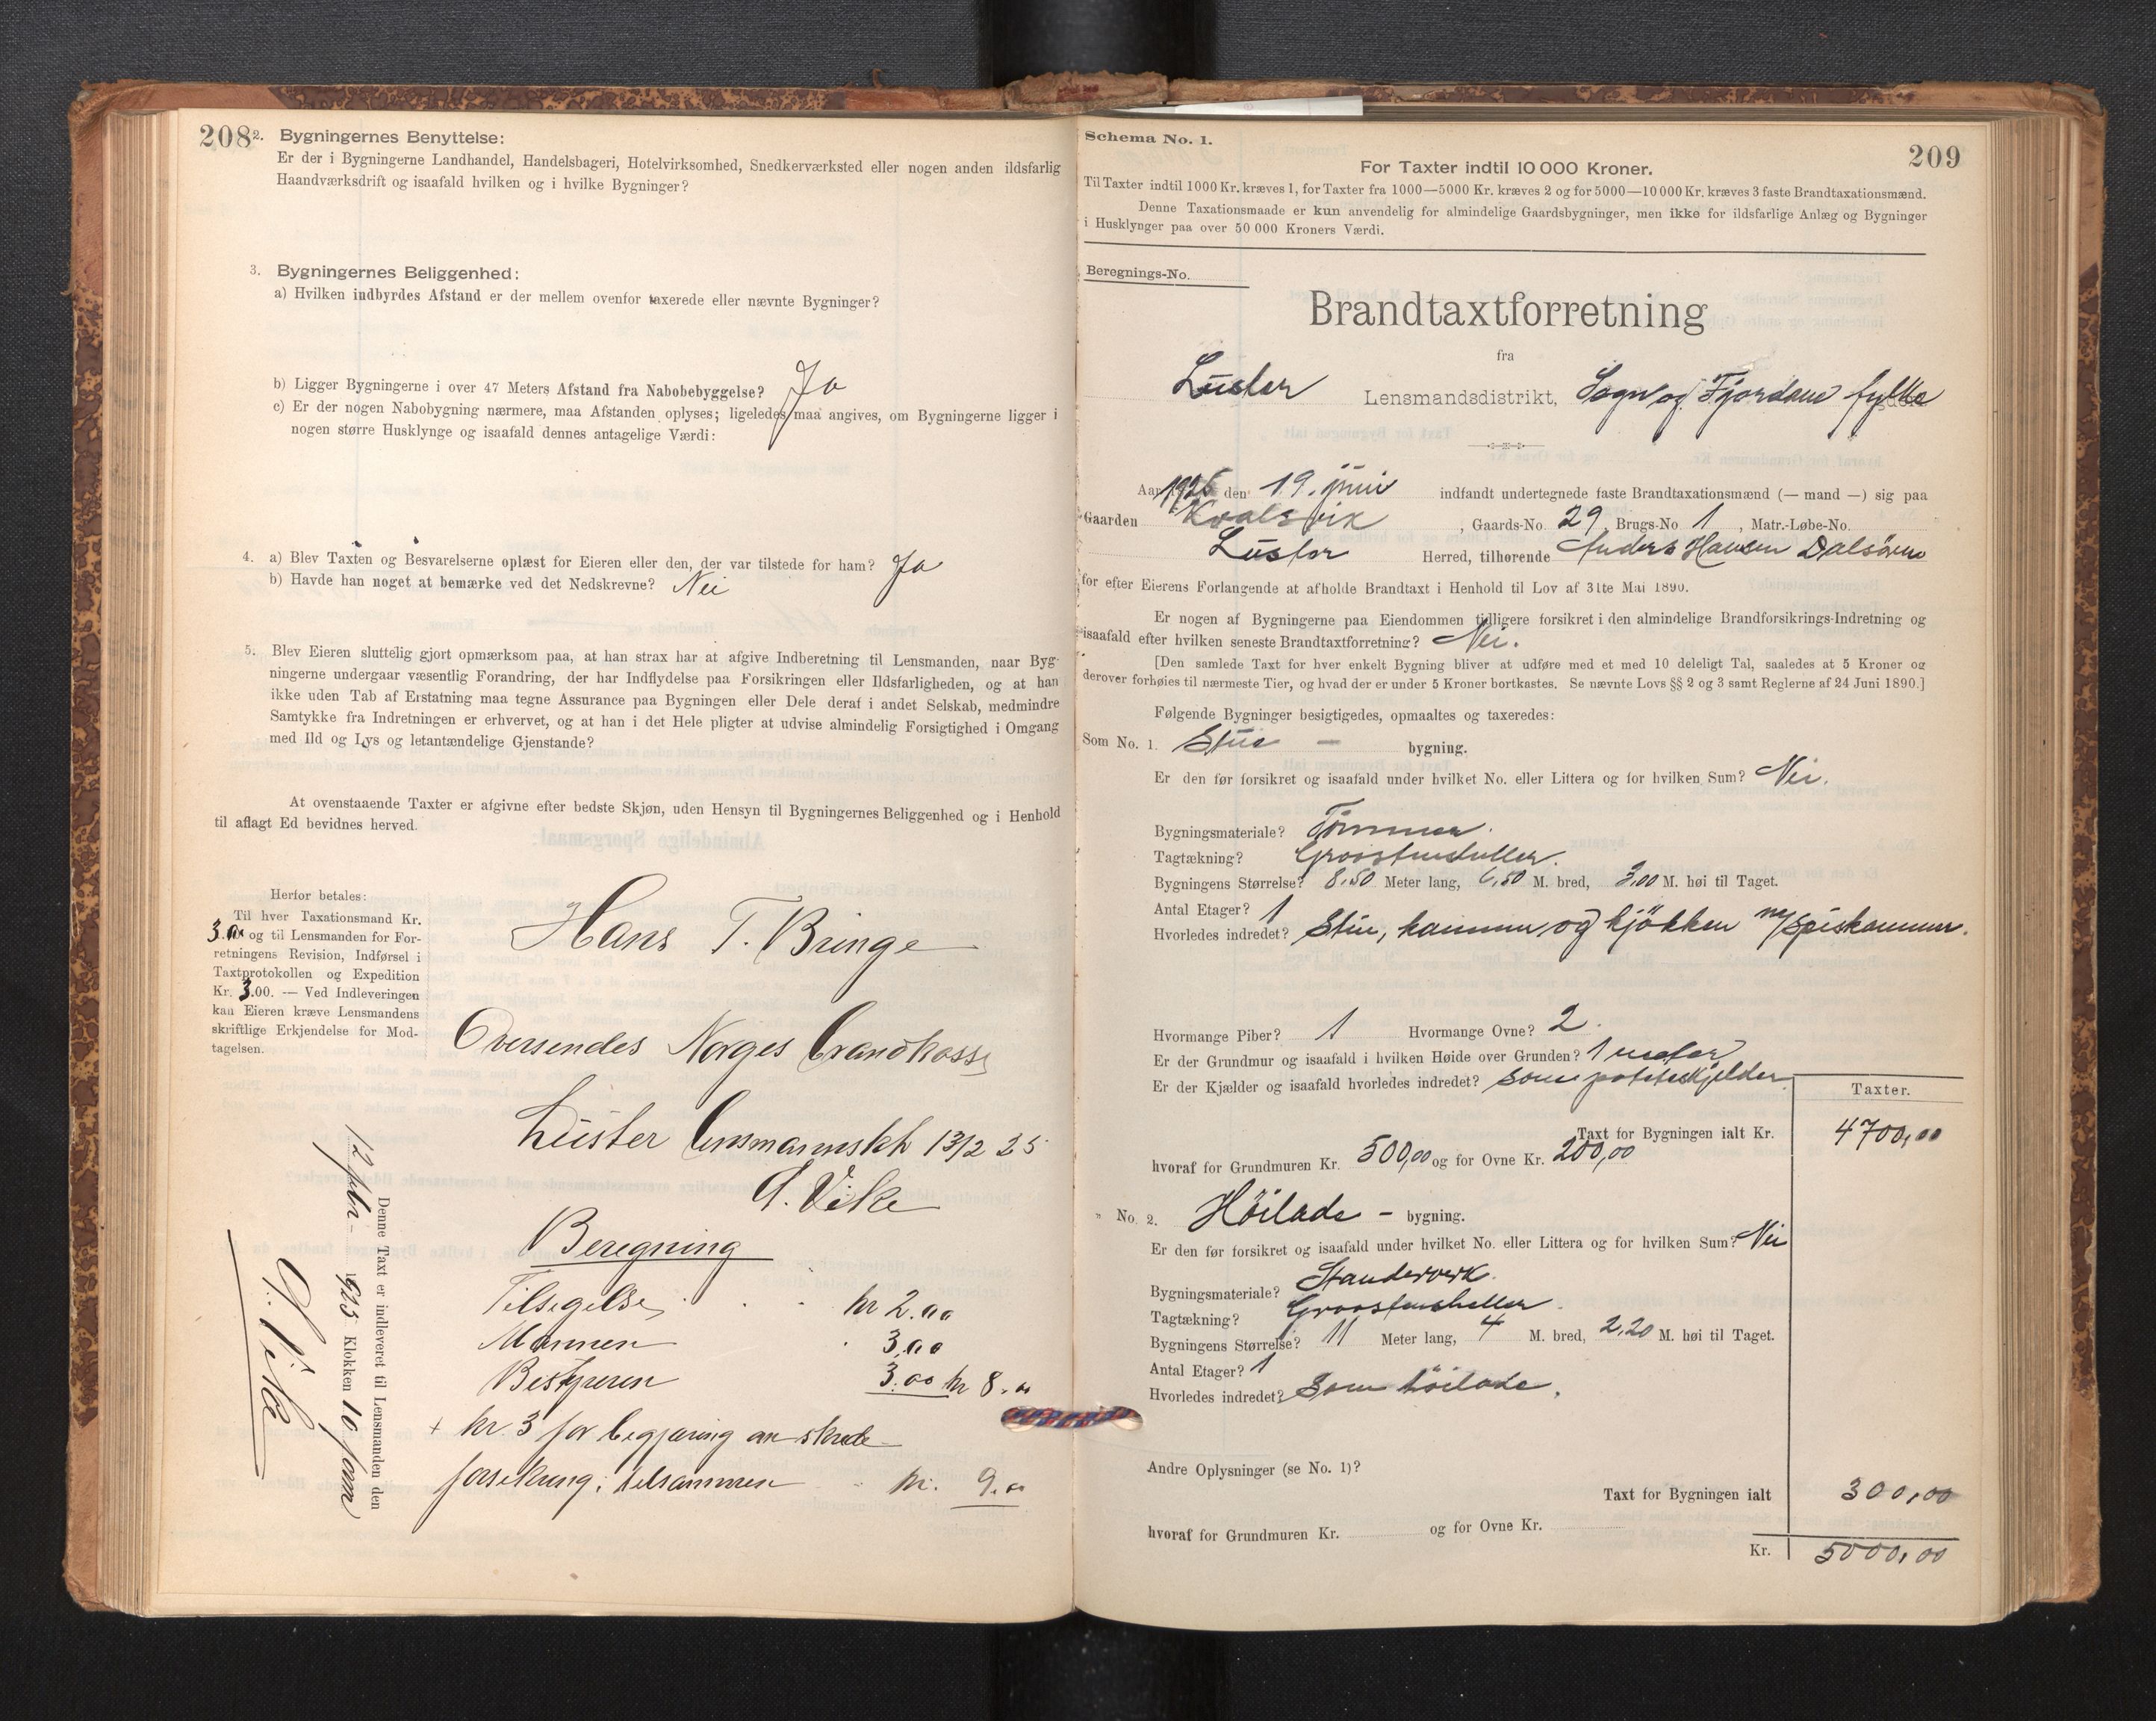 208
2. Bygningernes Benyttelse:
Er der i Bygningerne Landhandel, Handelsbageri, Hotelvirksomhed, Snedkerværksted eller nogen anden ildsfarlig
Haandværksdrift og isaafald hvilken og i hvilke Bygninger?
3. Bygningernes Beliggenhed:
a) Hvilken indbyrdes Afstand er der mellem ovenfor taxerede eller nævnte Bygninger?
b) Ligger Bygningerne i over 47 Meters Afstand fra Nabobebyggelse? Ja
c) Er der nogen Nabobygning nærmere, maa Afstanden oplyses; ligeledes maa angives, om Bygningerne ligger i
nogen større Husklynge og isaafald dennes antagelige Værdi:
4. a) Blev Taxten og Besvarelserne oplæst for Eieren eller den, der var tilstede for ham? Ja
b) Havde han noget at bemærke ved det Nedskrevne? Nei
5. Blev Eieren sluttelig gjort opmærksom paa, at han strax har at afgive Indberetning til Lensmanden, naar Byg-
ningerne undergaar væsentlig Forandring, der har Indflydelse paa Forsikringen eller Ildsfarligheden, og at han
ikke uden Tab af Erstatning maa tegne Assurance paa Bygningen eller Dele deraf i andet Selskab, medmindre
Samtykke fra Indretningen er erhvervet, og at han i det Hele pligter at udvise almindelig Forsigtighed i Omgang
med Ild og Lys og letantændelige Gjenstande?
At ovenstaaende Taxter er afgivne efter bedste Skjøn, uden Hensyn til Bygningernes Beliggenhed og i Henhold
til aflagt Ed bevidnes herved.
Herfor betales:
Til hver Taxationsmand Kr.
3.00 og til Lensmanden for For-
retningens Revision, Indførsel i
Taxtprotokollen og Expedition
Kr. 3.00. — Ved Indleveringen
kan Eieren kræve Lensmandens
skriftlige Erkjendelse for Mod-
tagelsen.
Hans T. Bringe
Oversendes Norges Brandkasse
Luster lensmannskt 13/2 25
A. Vike
Beregning
Tilsigelse kr 2.00
Mannen 3.00
Bestyreren 3.00 kr 8.00
+ kr 3 for begjæring om skade
forsikring; tilsammen kr. 9.00
Denne Taxt er indleveret til Lensmanden den
12 febr. 1925 Klokken 10 form
A. Vike
209
Schema No. 1.
For Taxter indtil 10 000 Kroner.
Til Taxter indtil 1000 Kr. kræves 1, for Taxter fra 1000—5000 Kr. kræves 2 og for 5000—10 000 Kr. kræves 3 faste Brandtaxationsmænd.
Denne Taxationsmaade er kun anvendelig for almindelige Gaardsbygninger, men ikke for ildsfarlige Anlæg og Bygninger
i Husklynger paa over 50 000 Kroners Værdi.
Beregnings-No.
Brandtaxtforretning
fra
Luster Lensmandsdistrikt, Sogn og Fjordane fylke
Aar 1925 den 19. juni indfandt undertegnede faste Brandtaxationsmænd (— mand —) sig paa
Gaarden Kvalsvik, Gaards-No. 29, Brugs-No. 1, Matr.-Løbe-No.
Luster Herred, tilhørende Anders Hansen Dalsøren
for efter Eierens Forlangende at afholde Brandtaxt i Henhold til Lov af 31te Mai 1890.
Er nogen af Bygningerne paa Eiendommen tidligere forsikret i den almindelige Brandforsikrings-Indretning og
isaafald efter hvilken seneste Brandtaxtforretning? Nei.
[Den samlede Taxt for hver enkelt Bygning bliver at udføre med et med 10 deleligt Tal, saaledes at 5 Kroner og
derover forhøies til nærmeste Tier, og hvad der er under 5 Kroner bortkastes. Se nævnte Lovs §§ 2 og 3 samt Reglerne af 24 Juni 1890.]
Følgende Bygninger besigtigedes, opmaaltes og taxeredes:
Som No. 1. Stue — bygning.
Er den før forsikret og isaafald under hvilket No. eller Littera og for hvilken Sum? Nei.
Bygningsmateriale? Tömmer.
Tagtækning? Graastenheller.
Bygningens Størrelse? 8,50 Meter lang, 6,50 M. bred, 3,00 M. høi til Taget.
Antal Etager? 1
Hvorledes indredet? Stue, kammer og kjökken m/ spiskammer.
Hvormange Piber? 1 Hvormange Ovne? 2.
Er der Grundmur og isaafald i hvilken Høide over Grunden? 1 meter
Er der Kjælder og isaafald hvorledes indredet? som potetkjelder
Taxter.
Taxt for Bygningen ialt Kr. 4700,00
hvoraf for Grundmuren Kr. 500,00 og for Ovne Kr. 200,00
" No. 2. Höilade - bygning.
Er den før forsikret og isaafald under hvilket No. eller Littera og for hvilken Sum? Nei
Bygningsmateriale? Standerverk.
Tagtækning? Graastensheller.
Bygningens Størrelse? 11 Meter lang, 4 M. bred, 2,20 M. høi til Taget.
Antal Etager? 1
Hvorledes indredet? Som höilade.
Andre Oplysninger (se No. 1)?
Taxt for Bygningen ialt 300,00
hvoraf for Grundmuren Kr. og for Ovne Kr.
Kr. 5000,00